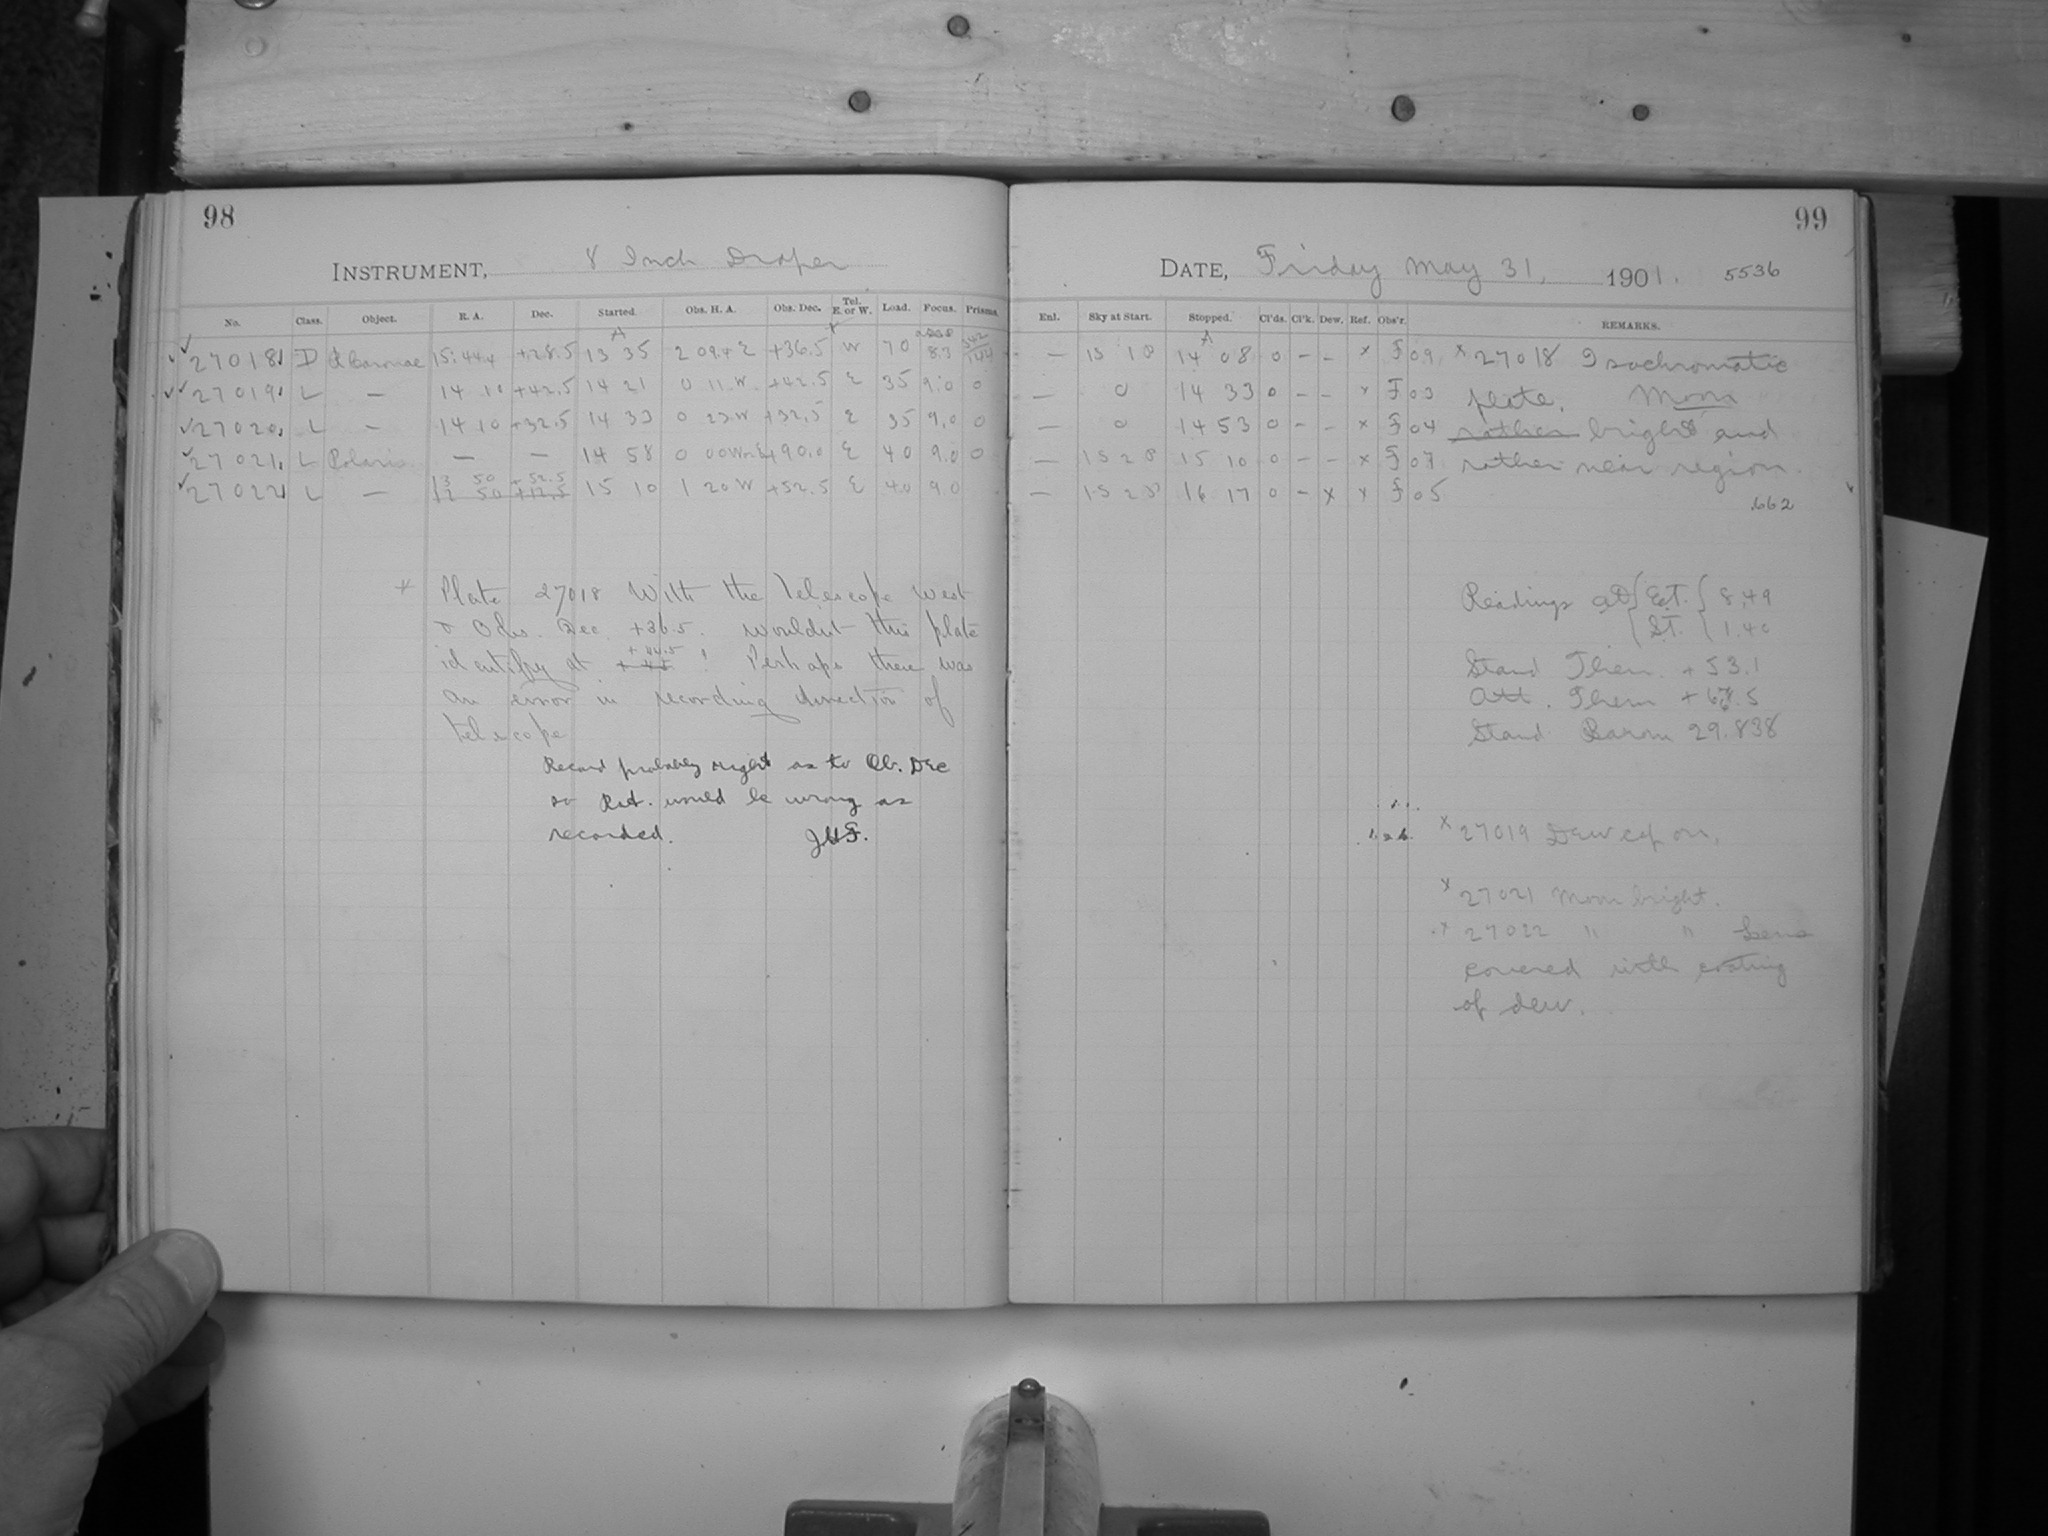 98
INSTRUMENT, 8 Inch Draper
No. Class. Object. R. A. Dec. Started. Obs. H. A. Obs. Dec. Tel. E. or W. Load. Focus. Prisms.
27018 D Coronae 15:44.4 +28.5 13 35 2 09.4 E +36.5 W 70 8.3
27019 L — 14 10 +42.5 14 21 0 11 W +42.5 E 35 9.0 0
27020 L — 14 10 +32.5 14 33 0 23 W +32.5 E 35 9.0 0
27021 L Polaris — — 14 58 0 00 +90.0 E 40 9.0 0
13 50 +52.5
27022 L — 12 50 +12.5 15 10 1 20 W +52.5 E 40 9.0
* Plate 27018 With the telescope west
& Obs. Dec. +36.5. wouldn't this plate
+44.5
identify at ? Perhaps there was
an error in recording direction of
telescope
Record probably right as to Ob. Dec
so Rot. would be wrong as
recorded. JHF.
99
DATE, Friday May 31, 1901. 5536
Enl. Sky at Start. Stopped. Cl'ds. Cl'k. Dew. Ref. Obs'r. REMARKS.
— 14 08 0 – – x F 09 x 27018 Isochromatic
— 0 14 33 0 – – x F 03 plate. Moon
— 0 14 53 0 – – x F 04 rather bright and
— 15 10 0 – – x F 07 rather near region.
— 16 17 0 – x x F 05
.662
Readings at { E.T. { 8.49
{ S.T. { 1.40
Stand Therm. +53.1
Att. Therm
Stand Barom 29.838
x 27019 Dew cap on.
x 27021 Moon bright.
x 27022 " " Lens
covered with coating
of dew.